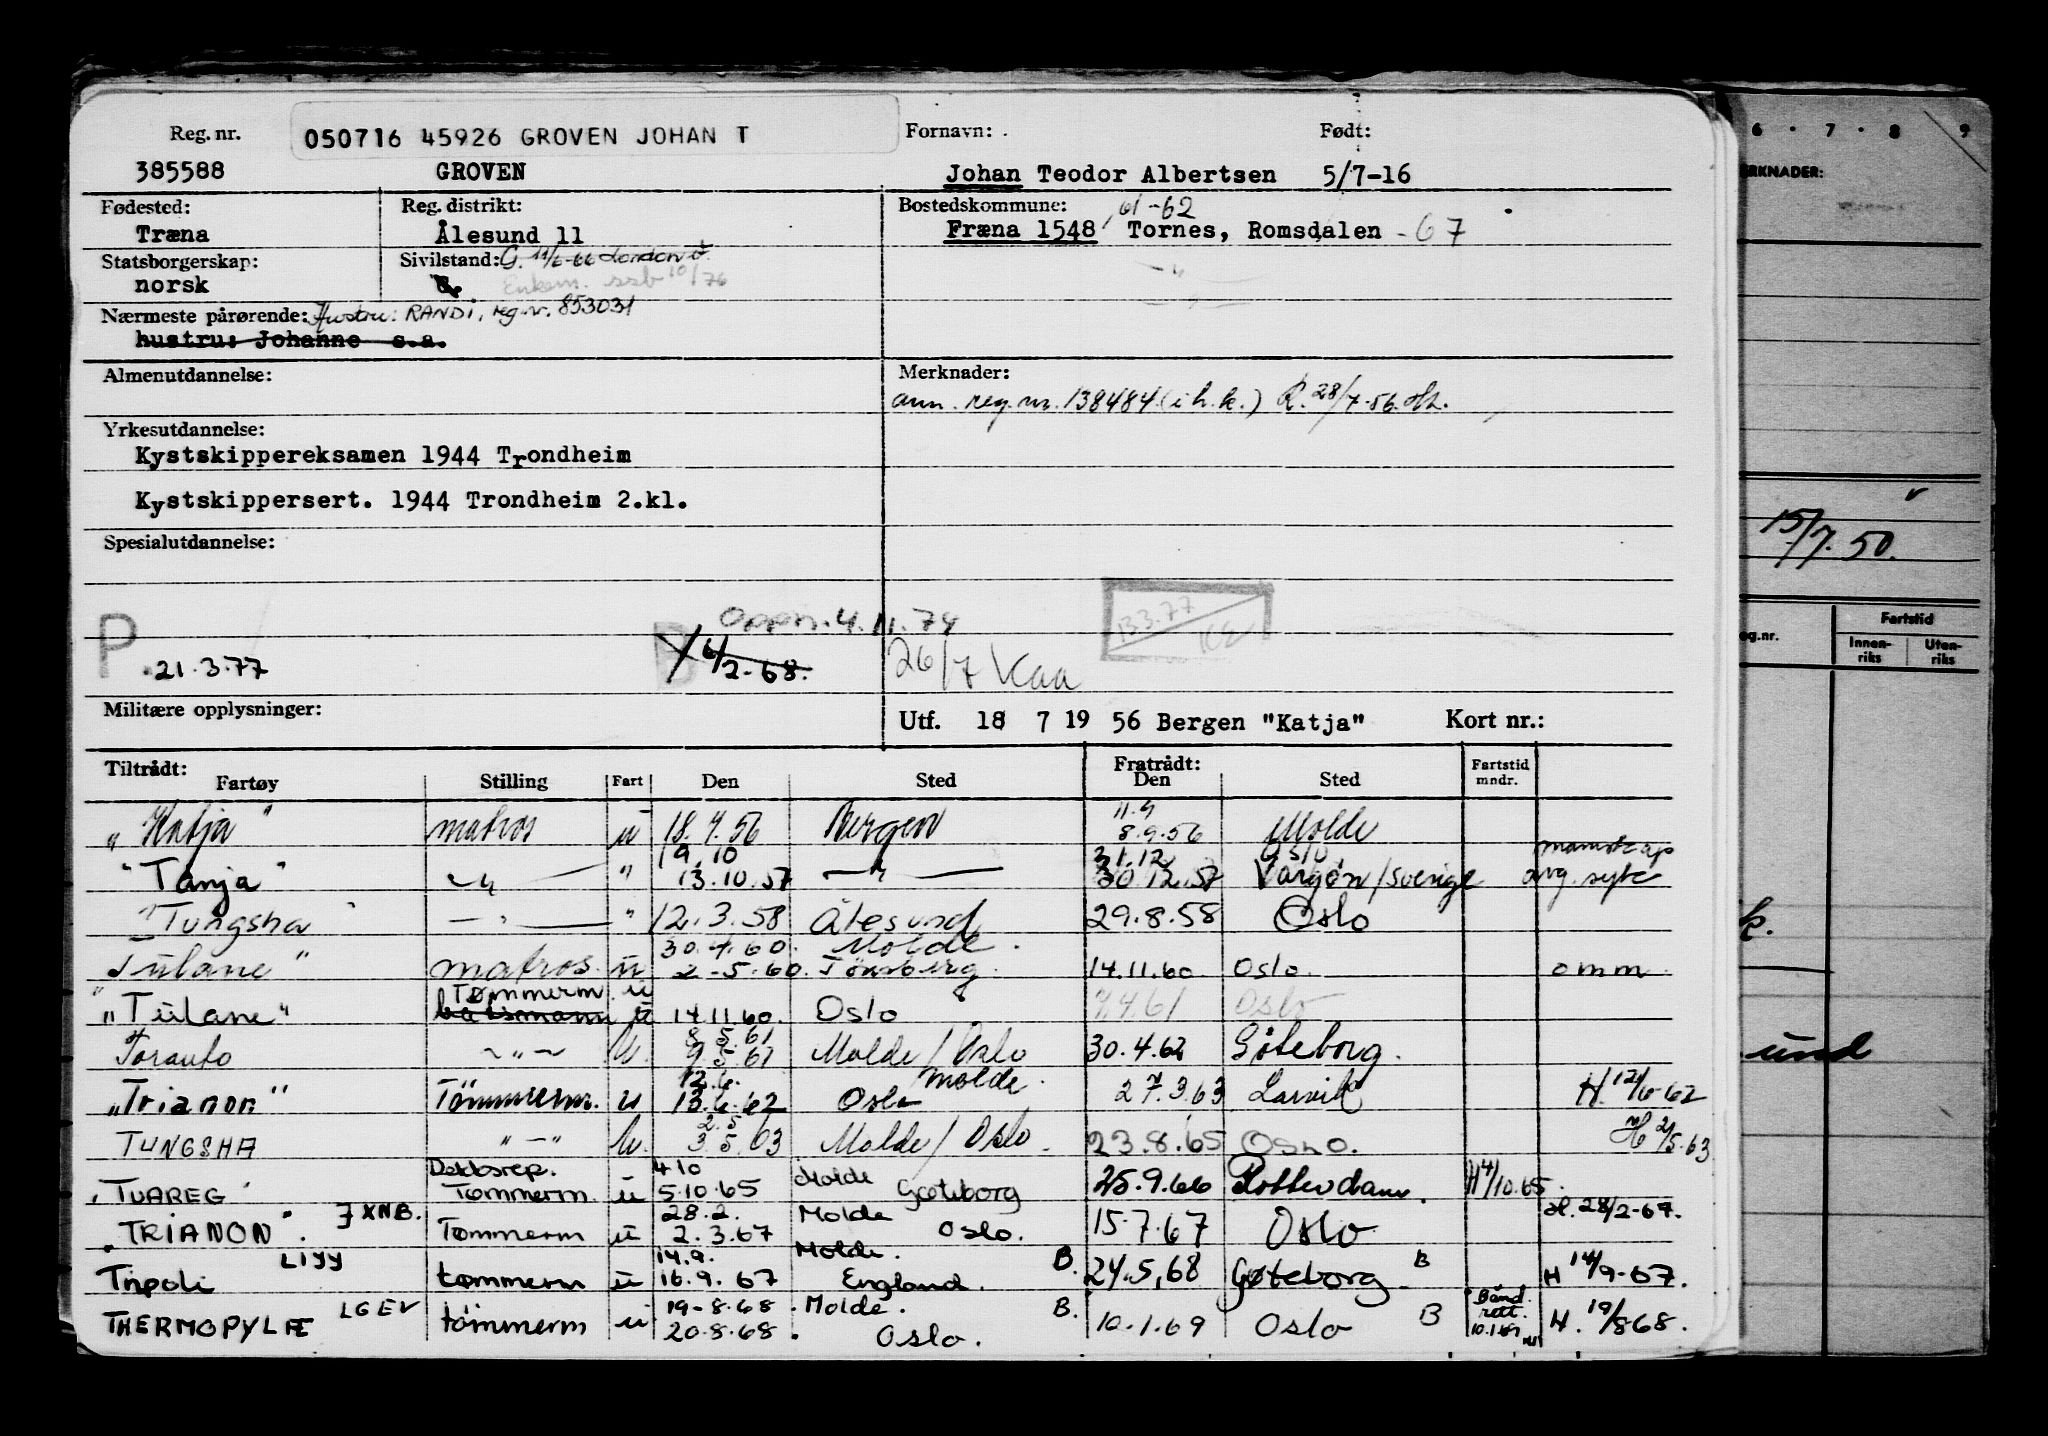 Reg. nr. 050716 45926 GROVEN JOHAN T Fornavn: Født:
385588 GROVEN Johan Teodor Albertsen 5/7-16
Fødested: Reg. distrikt: Bostedskommune: 61-62
Træna Ålesund 11 Fræna 1548 Tornes, Romsdalen - 67
Statsborgerskap: Sivilstand: G. 11/6-66 London
norsk Enkem. ssb 10/76
Nærmeste pårørende: Hustru: RANDI, reg.nr. 853031
hustru: Johanne s.a.
Almenutdannelse: Merknader:
ann. reg. nr. 138484 (i h.k.) R. 28/7-56.
Yrkesutdannelse:
Kystskippereksamen 1944 Trondheim
Kystskippersert. 1944 Trondheim 2.kl.
Spesialutdannelse:
Oppn. 4.11.74 13.3.77
P 21.3.77 B 6/2-68. 26/7 Kaa
Militære opplysninger: Utf. 18 7 19 56 Bergen "Katja" Kort nr.:
Tiltrådt: Fratrådt: Fartstid
Fartøy Stilling Fart Den Sted Den Sted mndr.
11.9
"Katja" matros u 18.7.56 Bergen 8.9.56 Molde
9.10 31.12. Oslo, mannskap
"Tanja" — " — " 13.10.57 — " — 30 12.57 Vargøn/Sverige avg. sytc
"Tungsha" — " — " 12.3.58 Ålesund 29.8.58 Oslo
30.4.60. Molde
Tulane" matros u 2-5.60. Tönsberg. 14.11.60. Oslo. omm
Tømmerm u
"Tulane" båtsmann u 14.11.60. Oslo 7.4.61 Oslo
8.5.61
Toranto — " — u. 9.5.61 Molde / Oslo 30.4.62 Göteborg.
12.6. Molde
"Trianon" Tömmerm. u 13.6.62 Oslo 27.3.63 Larvik H 12/6-62
2.5
TUNGSHA " — " u. 3.5.63 Molde / Oslo 23.8.65 OSLO. H 2/5.63
Dekksrep. 4 10 Molde
"TUAREG" Tømmerm. u 5.10.65 Gøteborg 25.9.66 Rotterdam. H 4/10.65.
JXNB. 28.2. Molde H. 28/2-67.
"TRIANON". Tømmerm u 2.3.67 Oslo. 15.7.67 Oslo
LIYY 14.9. Molde. B. B
Tripoli tømmerm u 16.9.67 England. 24.5.68 Gøteborg H 14/9-67.
LGEV 19-8.68. Molde. B. B Bånd rett. 10.1.69
THERMOPYLÆ tömmerm u 20.8.68. Oslo. 10.1.69 Oslo H. 19/8 68.
6 . 7 . 8 9
ERKNADER:
15/7.50.
Fartstid
og.nr. Innenriks Utenriks
k.
und